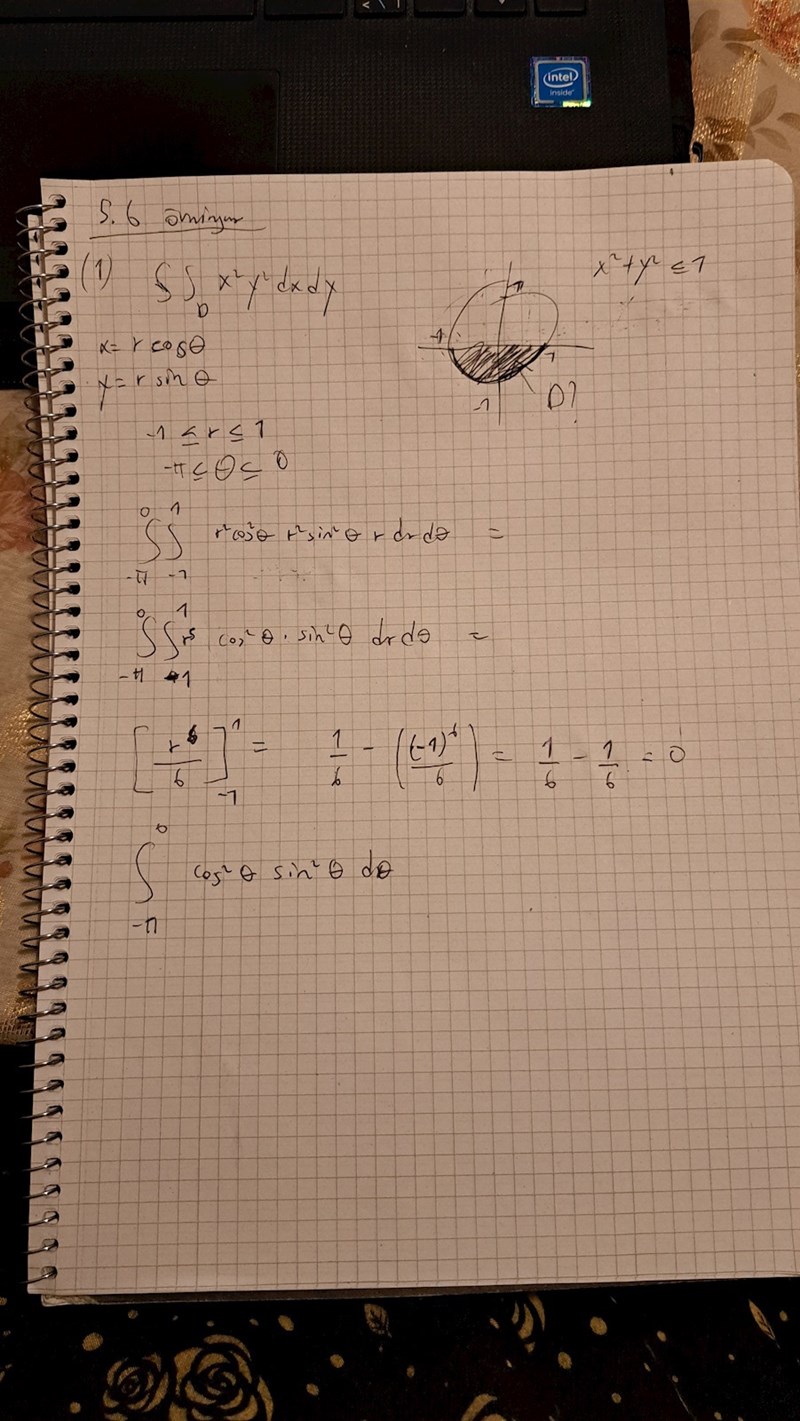 intel
inside
5.6 övningar
(1) ∬_D x²y² dx dy
x²+y² ≤ 1
x = r cosθ
y = r sin θ
1
-1
1
-1
D?
-1 ≤ r ≤ 1
-π ≤ θ ≤ 0
∫_{-π}^{0} ∫_{-1}^{1} r²cos²θ r²sin²θ r dr dθ =
∫_{-π}^{0} ∫_{-1}^{1} r⁵ cos²θ · sin²θ dr dθ =
[r⁶/6]_{-1}^{1} = 1/6 - ((-1)⁶/6) = 1/6 - 1/6 = 0
∫_{-π}^{0} cos²θ sin²θ dθ